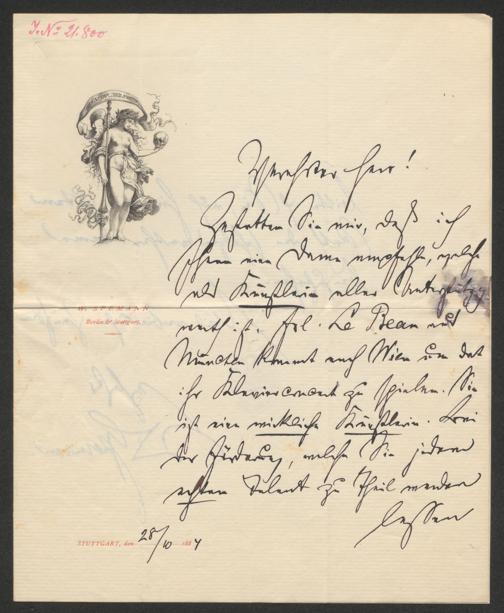 J. No 21.800
Verehrter Herr!
Gestatten Sie mir, daß ich
Ihnen eine Dame empfehle, welche
als Künstlerin aller Unterstützung
werth ist. Frl. Le Beau aus
München kommt nach Wien um dort
ihr Klavierconcert zu spielen. Sie
ist eine wirkliche Künstlerin. Bei
der Förderung, welche Sie jedem
echten Talent zu Theil werden
lassen
W. SPEMANN
Berlin & Stuttgart.
STUTTGART, den 28/10 1884